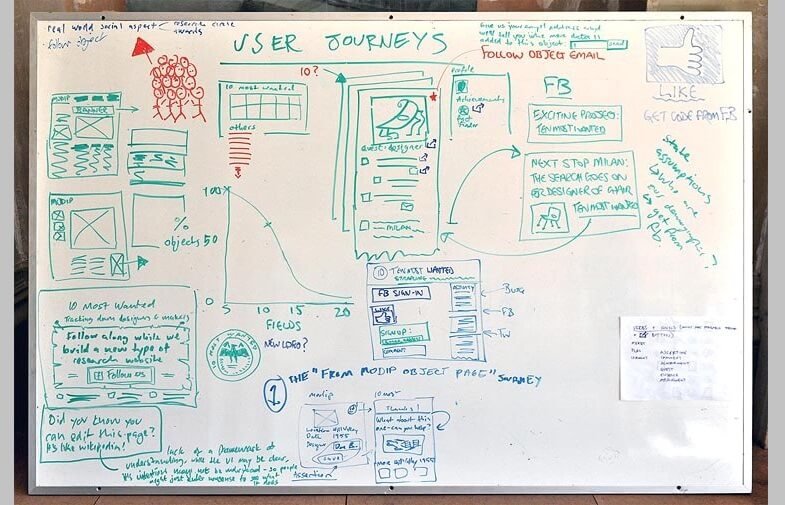 real world social aspect
research circle
awards
follow object
USER JOURNEYS
Give us your email address and
we'll tell you when more data is
added to this object.
send
FOLLOW OBJECT EMAIL
LIKE
GET CODE FROM FB
10?
profile
Achievements
FB
EXCITING PROJECT:
TEN MOST WANTED
NEXT STOP MILAN:
THE SEARCH GOES ON
FOR DESIGNER OF CHAIR
TEN MOST WANTED
State
assumptions
Who are
we
get from
Fb
?
MODIP
BANNER
10 most wanted
others
Quest: designer
MILAN
MODIP
100
%
objects 50
0
5 10 15 20
FIELDS
NEW LOGO?
MOST WANTED
10 TEN MOST WANTED
STRAPLINE
FB SIGN-IN
ACTIVITY
LIKE
SIGN UP:
COMMENT
FB
TW
10 Most Wanted
Tracking down designers & makers
Follow along while we
build a new type of
research website
Follow us
Did you know you
can edit this page?
It's like wikipedia!
lack of a framework of
understanding, while the UI may be clear,
it's intentions may not be understood - so people
might just enter nonsense to see what
it does
1 THE "FROM MODIP OBJECT PAGE" JOURNEY
modip
Date 1955
Designer
Assertion
10 most
Thanks!
What about this
one - can you help?
VERBS +
ASSERTION
COMMENT
ACHIEVEMENT
QUEST
EVIDENCE